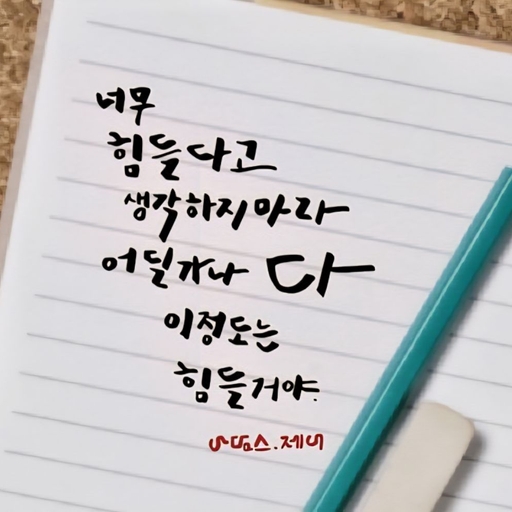 너무
힘들다고
생각하지마라
어딜가나 다
이정도는
힘들거야.